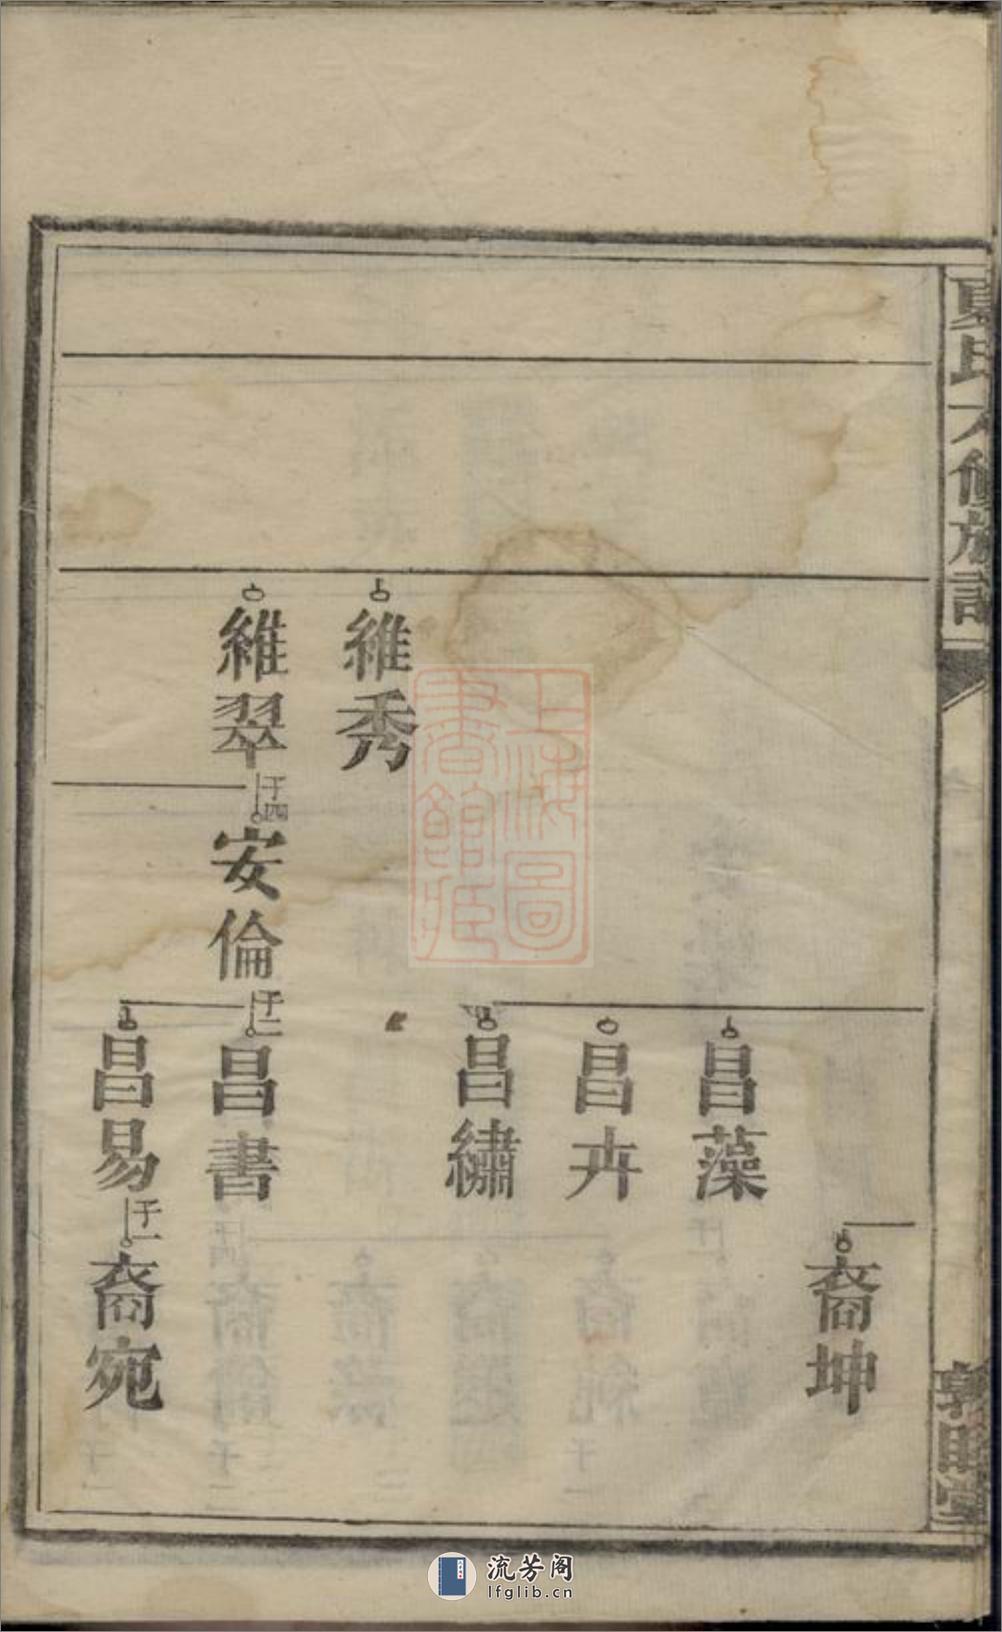 夏氏六修族譜
敦睦堂
裔坤
昌藻
昌卉
昌繡
維秀
維翠
子四
安倫
子二
昌書
昌易
子一
裔宛
上海圖
書館藏
流芳阁
lfglib.cn